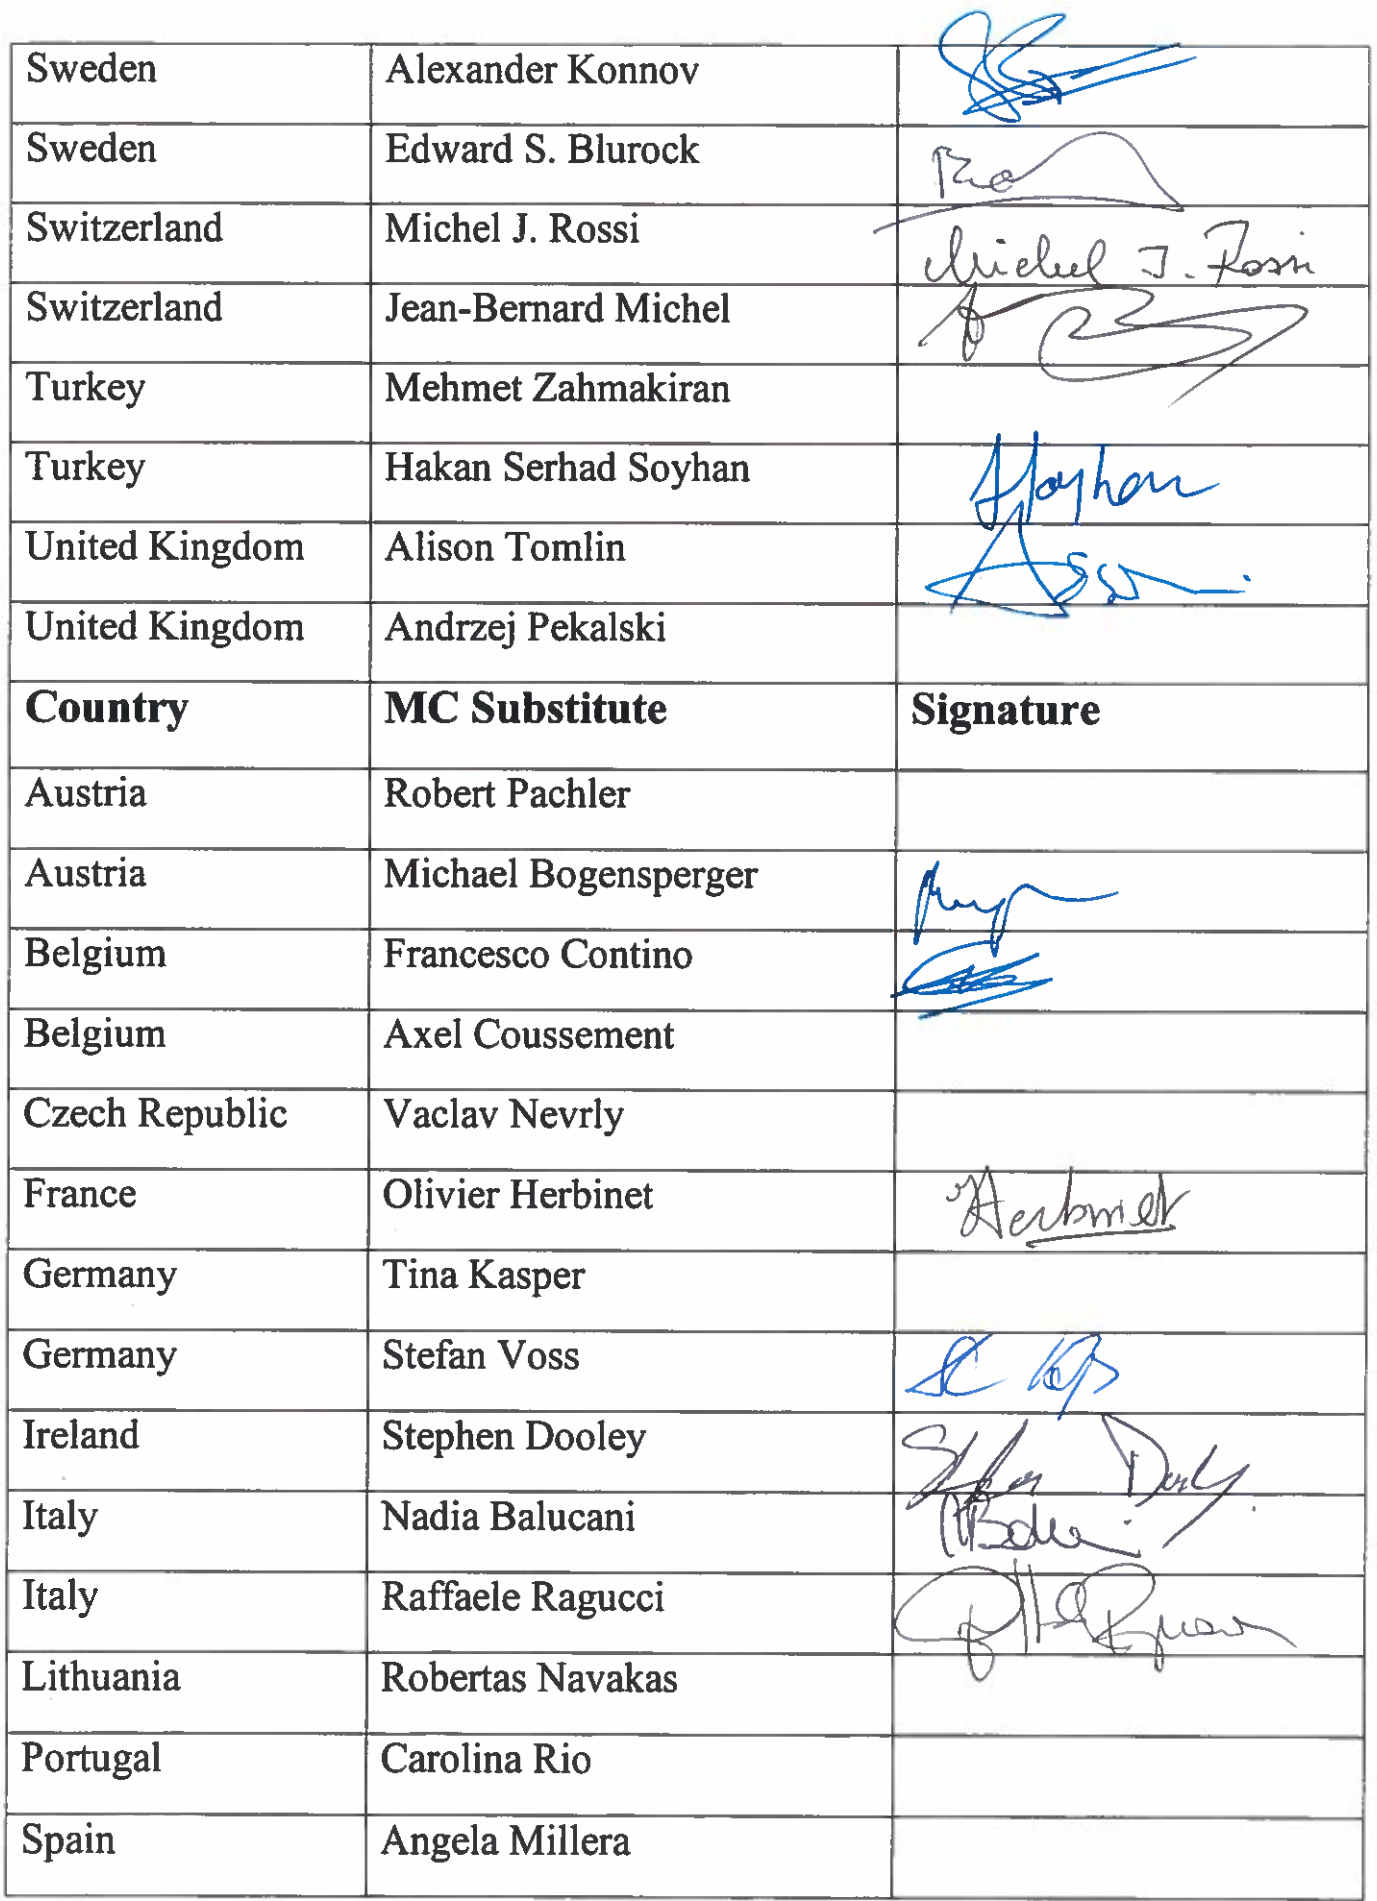 Sweden Alexander Konnov
Sweden Edward S. Blurock
Switzerland Michel J. Rossi Michel J. Rossi
Switzerland Jean-Bernard Michel
Turkey Mehmet Zahmakiran
Turkey Hakan Serhad Soyhan Soyhan
United Kingdom Alison Tomlin
United Kingdom Andrzej Pekalski
Country MC Substitute Signature
Austria Robert Pachler
Austria Michael Bogensperger
Belgium Francesco Contino
Belgium Axel Coussement
Czech Republic Vaclav Nevrly
France Olivier Herbinet Herbinet
Germany Tina Kasper
Germany Stefan Voss
Ireland Stephen Dooley
Italy Nadia Balucani
Italy Raffaele Ragucci
Lithuania Robertas Navakas
Portugal Carolina Rio
Spain Angela Millera